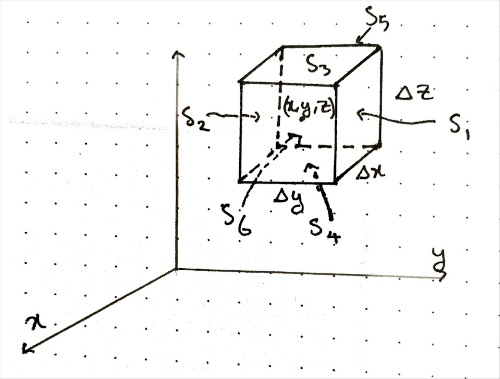 S5
S3
Δz
S2
(x,y,z)
S1
Δx
Δy
S6
S4
y
x